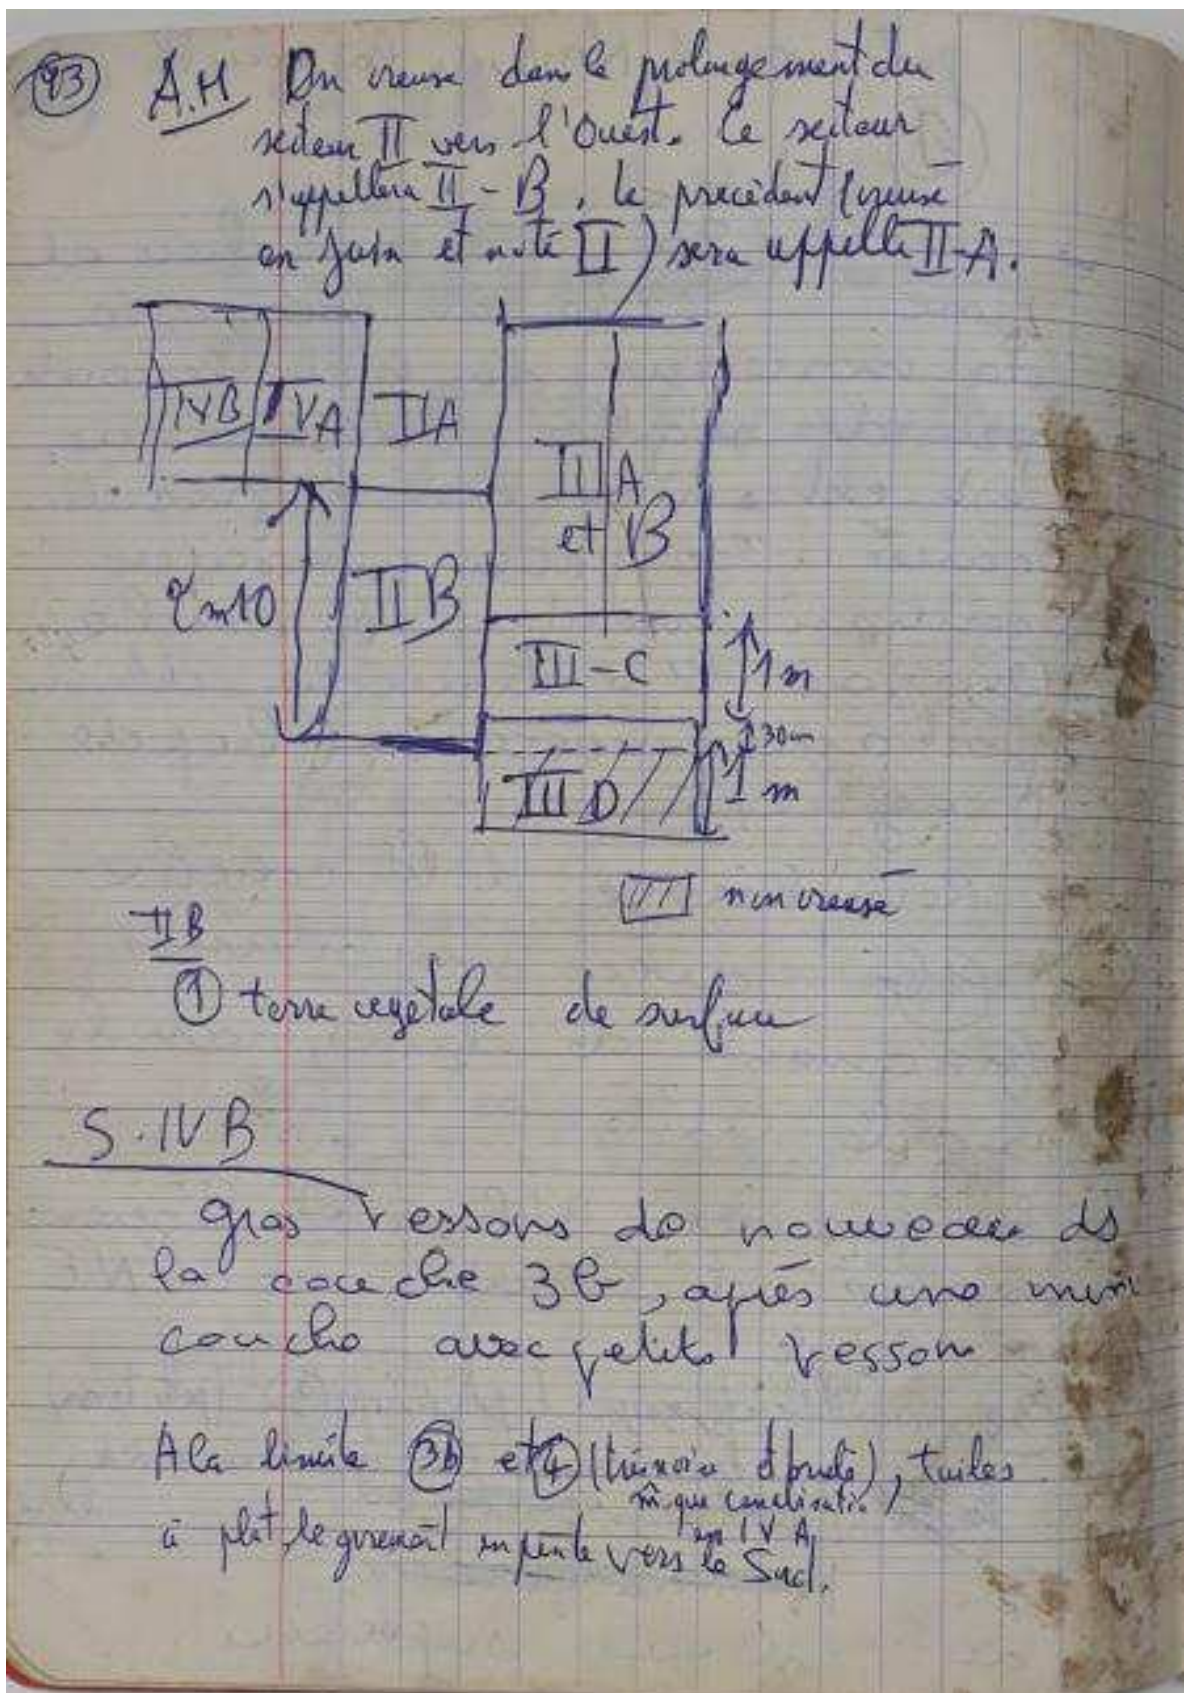 93 A.H On creuse dans le prolongement du
secteur II vers l'Ouest. Ce secteur
s'appellera II-B, le précédent (creusé
en Juin et noté II) sera appellé II-A.
IVB IVA IIA
III A
et B
2m10 IIB
III-C 1m
30cm
III D 1m
non creusé
II B
① terre végétale de surface
S.IVB
gros tessons de nouveau ds
la couche 3b, après une mini
couche avec petits tessons
A la limite 3b et 4 , tuiles
m̂ que canalisation
en IVA
à plat, légèrement en pente vers le Sud.